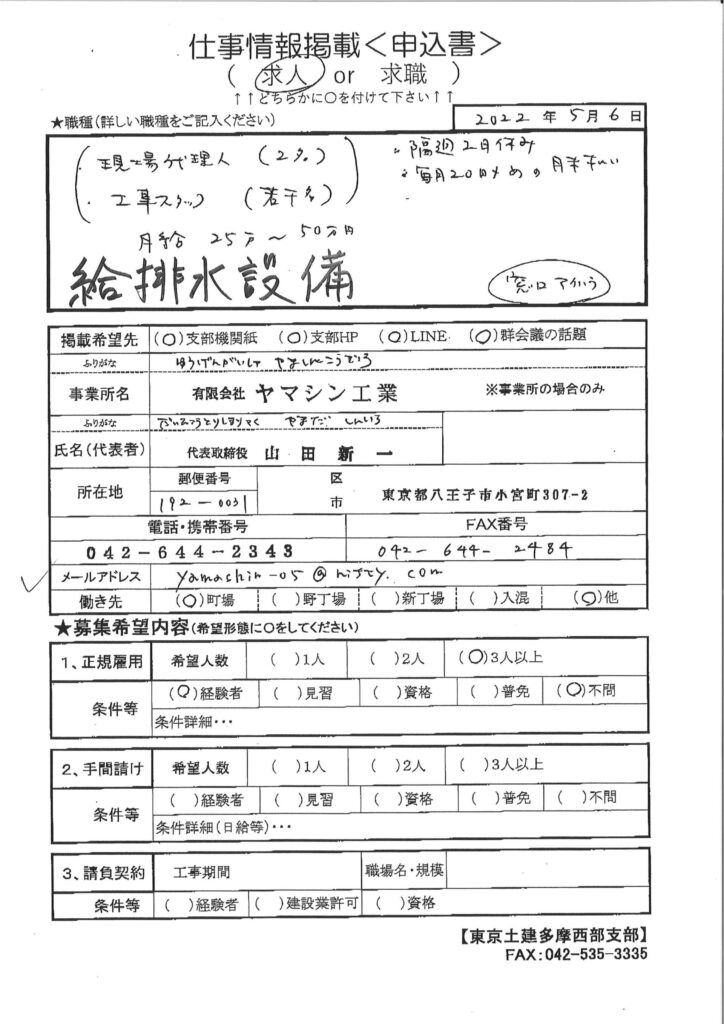 仕事情報掲載＜申込書＞
( 求人 or 求職 )
↑↑どちらかに○を付けて下さい↑↑
★職種(詳しい職種をご記入ください)
2022 年 5月 6日
・現場代理人 (2名)
・工事スタッフ (若干名)
・隔週2日休み
・毎月20日〆めの 月末払い
月給 25万～50万円
給排水設備
窓口
掲載希望先 (○)支部機関紙 (○)支部HP (○)LINE (○)群会議の話題
ふりがな ゆうげんがいしゃ やましんこうぎょう
事業所名 有限会社 ヤマシン工業 ※事業所の場合のみ
ふりがな だいひょうとりしまりやく やまだ しんいち
氏名(代表者) 代表取締役 山田新一
所在地 郵便番号 192-0031 区 市 東京都八王子市小宮町307-2
電話・携帯番号 FAX番号
042-644-2343 042-644-2484
メールアドレス yamashin-05@nifty.com
働き先 (○)町場 ( )野丁場 ( )新丁場 ( )入混 (○)他
★募集希望内容(希望形態に○をしてください)
1、正規雇用 希望人数 ( )1人 ( )2人 (○)3人以上
条件等 (○)経験者 ( )見習 ( )資格 ( )普免 (○)不問
条件詳細・・・
2、手間請け 希望人数 ( )1人 ( )2人 ( )3人以上
条件等 ( )経験者 ( )見習 ( )資格 ( )普免 ( )不問
条件詳細(日給等)・・・
3、請負契約 工事期間 職場名・規模
条件等 ( )経験者 ( )建設業許可 ( )資格
【東京土建多摩西部支部】
FAX:042-535-3335